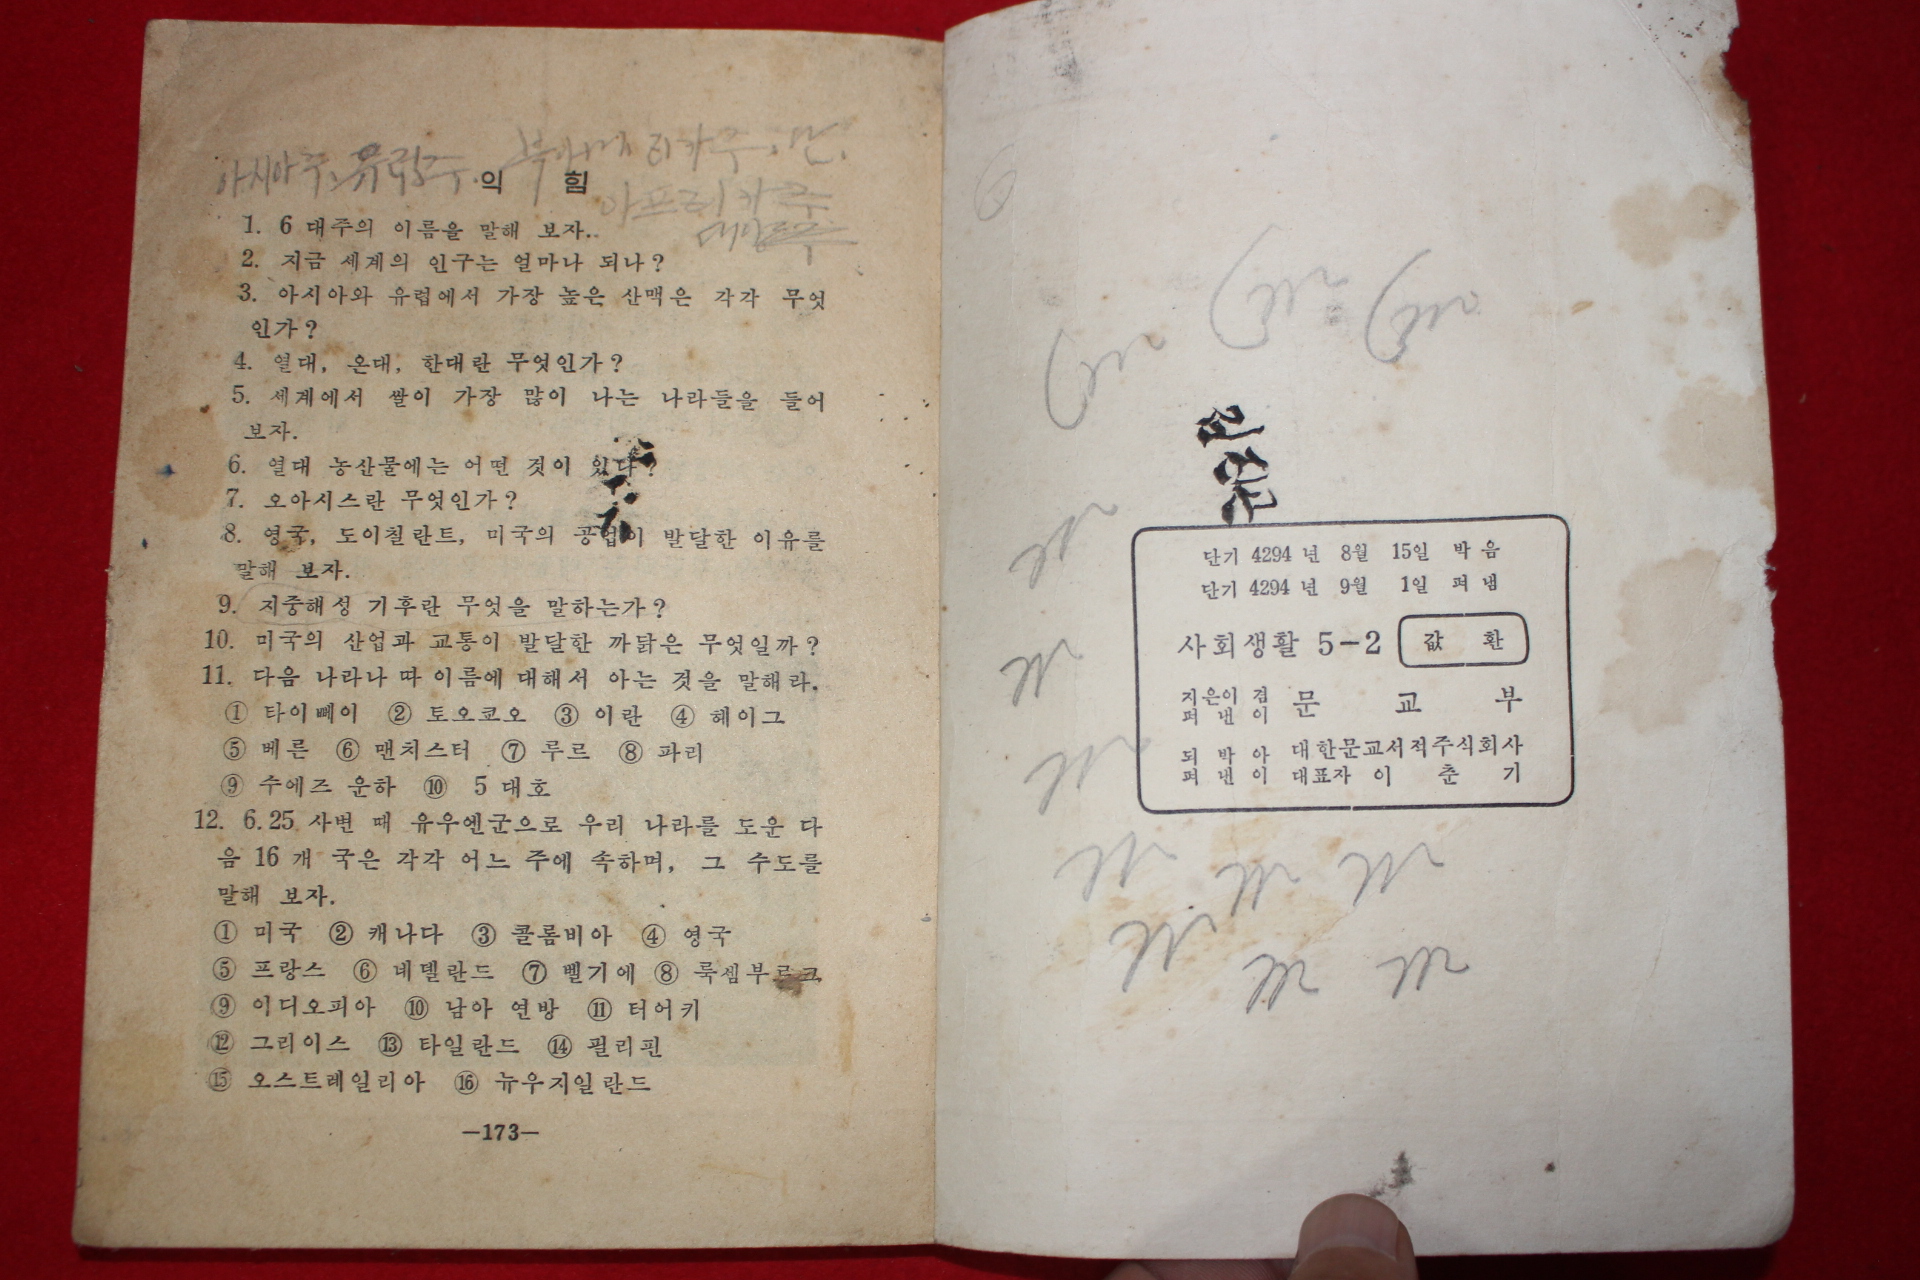 아시아주, 유럽주, 북아메리카주, 남,
아프리카주
대양주
익 힘
1. 6 대주의 이름을 말해 보자.
2. 지금 세계의 인구는 얼마나 되나?
3. 아시아와 유럽에서 가장 높은 산맥은 각각 무엇
인가?
4. 열대, 온대, 한대란 무엇인가?
5. 세계에서 쌀이 가장 많이 나는 나라들을 들어
보자.
6. 열대 농산물에는 어떤 것이 있나?
7. 오아시스란 무엇인가?
8. 영국, 도이췰란트, 미국의 공업이 발달한 이유를
말해 보자.
9. 지중해성 기후란 무엇을 말하는가?
10. 미국의 산업과 교통이 발달한 까닭은 무엇일까?
11. 다음 나라나 따 이름에 대해서 아는 것을 말해라.
① 타이뻬이 ② 토오쿄오 ③ 이란 ④ 헤이그
⑤ 베른 ⑥ 맨치스터 ⑦ 루르 ⑧ 파리
⑨ 수에즈 운하 ⑩ 5 대호
12. 6.25 사변 때 유우엔군으로 우리 나라를 도운 다
음 16 개 국은 각각 어느 주에 속하며, 그 수도를
말해 보자.
① 미국 ② 캐나다 ③ 콜롬비아 ④ 영국
⑤ 프랑스 ⑥ 네델란드 ⑦ 벨기에 ⑧ 룩셈부르크
⑨ 이디오피아 ⑩ 남아 연방 ⑪ 터어키
⑫ 그리이스 ⑬ 타일란드 ⑭ 필리핀
⑮ 오스트레일리아 ⑯ 뉴우지일란드
—173—
단기 4294 년 8월 15일 박음
단기 4294 년 9월 1일 펴냄
사회생활 5-2 값 환
지은이 겸
펴 낸 이 문 교 부
되 박 아
펴 낸 이 대한문교서적주식회사
대표자 이 춘 기